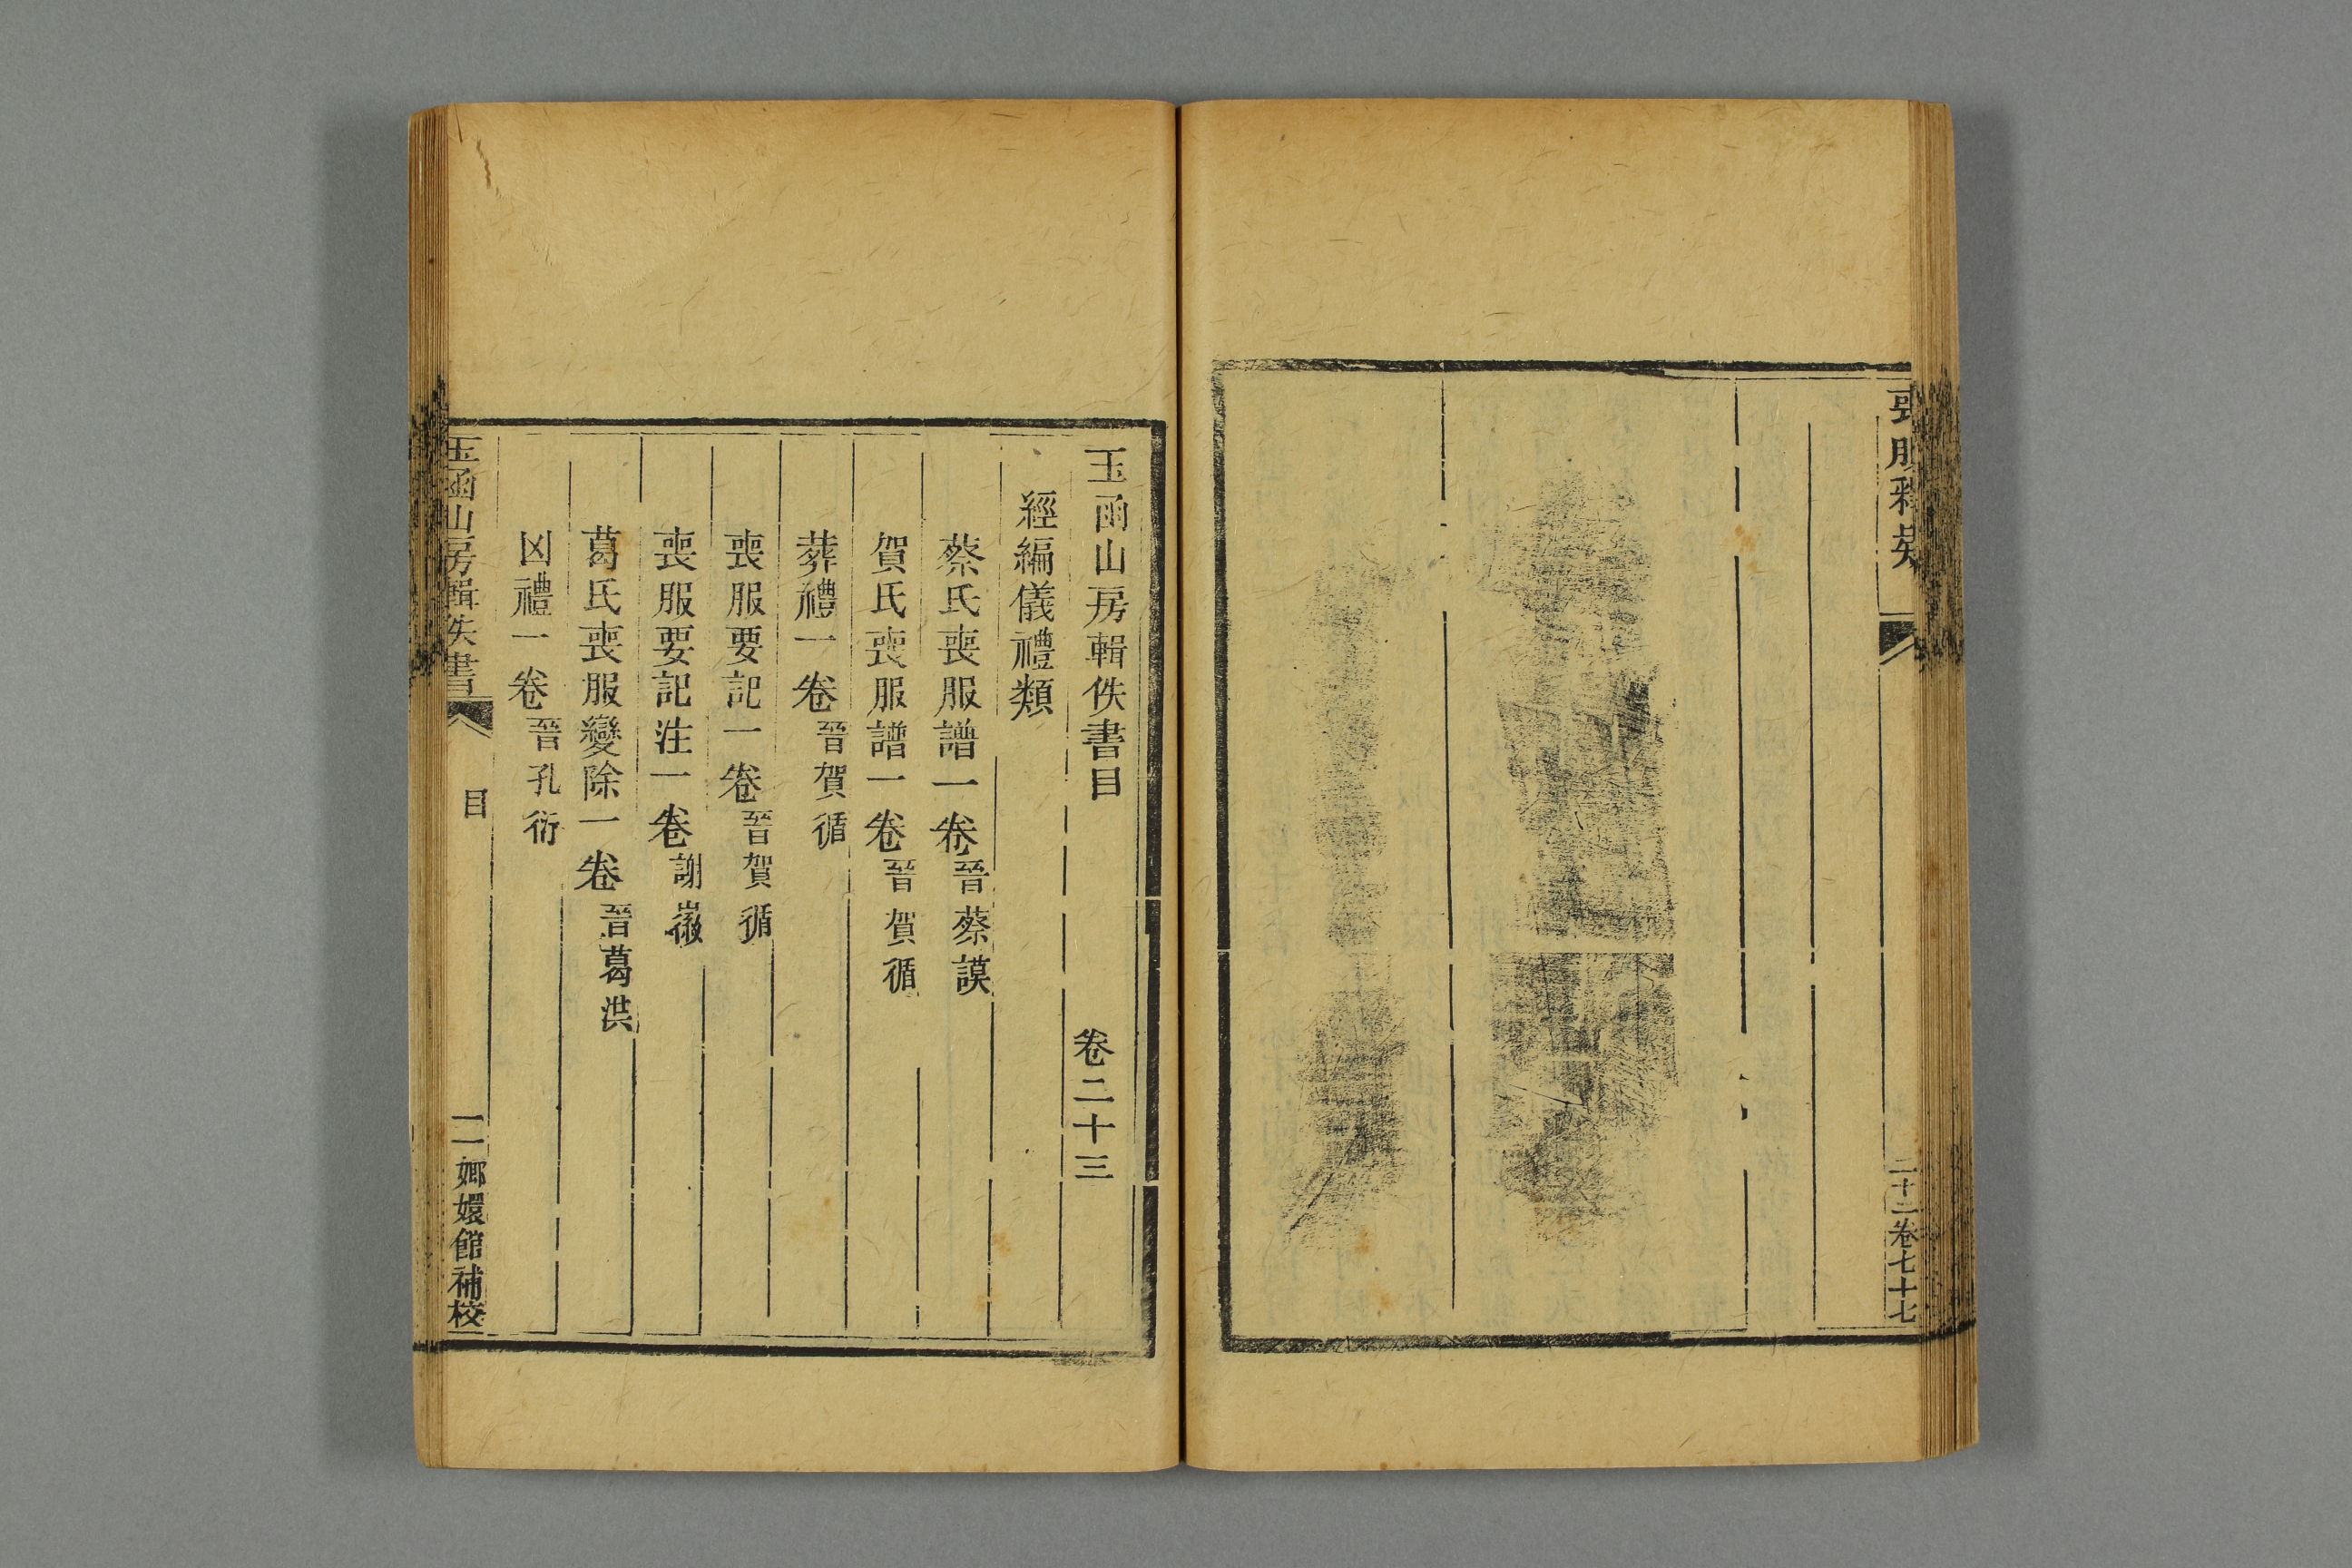 喪服釋疑
二十二卷七十七
玉函山房輯佚書目 卷二十三
經編儀禮類
蔡氏喪服譜一卷晉蔡謨
賀氏喪服譜一卷晉賀循
葬禮一卷晉賀循
喪服要記一卷晉賀循
喪服要記注一卷謝徽
葛氏喪服變除一卷晉葛洪
凶禮一卷晉孔衍
玉函山房輯佚書 目 二 嫏嬛館補校